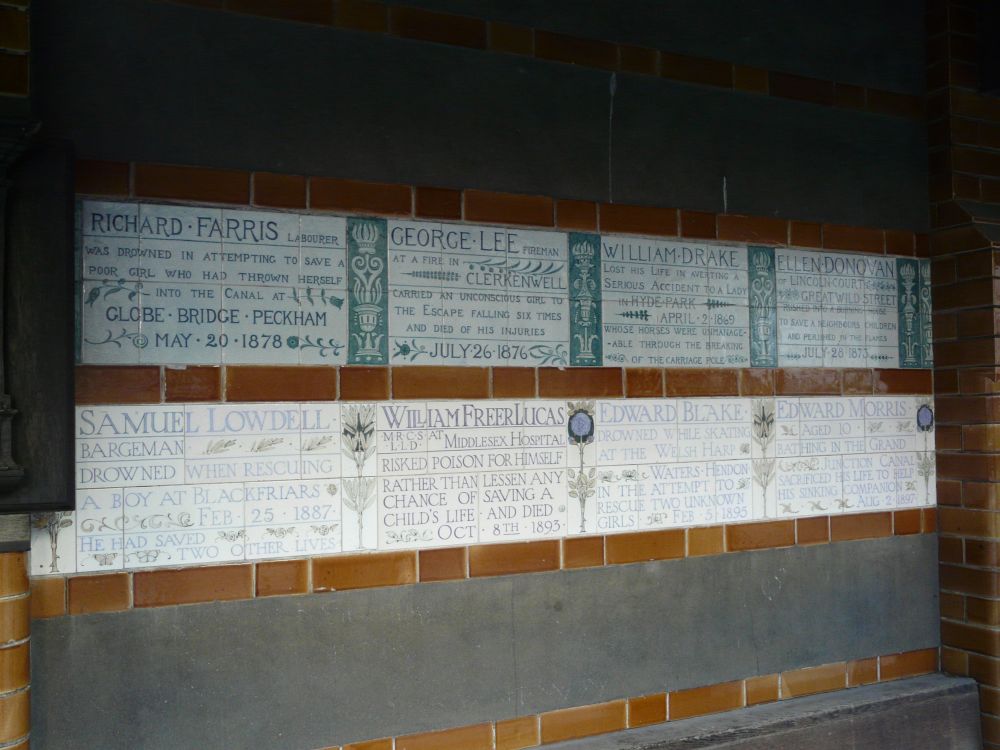 RICHARD·FARRIS LABOURER
WAS DROWNED IN ATTEMPTING TO SAVE A
POOR GIRL WHO HAD THROWN HERSELF
INTO THE CANAL AT
GLOBE·BRIDGE·PECKHAM
MAY·20·1878
GEORGE·LEE FIREMAN
AT A FIRE IN
CLERKENWELL
CARRIED AN UNCONSCIOUS GIRL TO
THE ESCAPE FALLING SIX TIMES
AND DIED OF HIS INJURIES
JULY·26·1876
WILLIAM·DRAKE
LOST HIS LIFE IN AVERTING A
SERIOUS ACCIDENT TO A LADY
IN HYDE·PARK
APRIL·2·1869
WHOSE HORSES WERE UNMANAGE-
ABLE THROUGH THE BREAKING
OF THE CARRIAGE POLE
ELLEN·DONOVAN
OF LINCOLN·COURT
GREAT WILD STREET
RUSHED INTO A BURNING HOUSE
TO SAVE A NEIGHBOURS CHILDREN
AND PERISHED IN THE FLAMES
JULY·28·1873
SAMUEL LOWDELL
BARGEMAN
DROWNED WHEN RESCUING
A BOY AT BLACKFRIARS
FEB·25·1887·
HE HAD SAVED TWO OTHER LIVES
WILLIAM FREER LUCAS
M·R·C·S·
L·L·D· AT MIDDLESEX HOSPITAL
RISKED POISON FOR HIMSELF
RATHER THAN LESSEN ANY
CHANCE OF SAVING A
CHILD'S LIFE AND DIED
OCT 8TH 1893·
EDWARD BLAKE
DROWNED WHILE SKATING
AT THE WELSH HARP
WATERS·HENDON
IN THE ATTEMPT TO
RESCUE TWO UNKNOWN
GIRLS FEB 5 1895
EDWARD MORRIS
AGED 10
BATHING IN THE GRAND
JUNCTION CANAL
SACRIFICED HIS LIFE TO HELP
HIS SINKING COMPANION
AUG 2·1897·